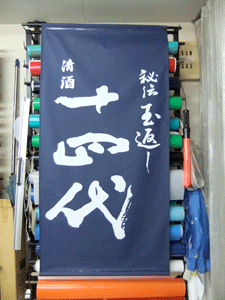 秘伝玉返し
清酒
十四代